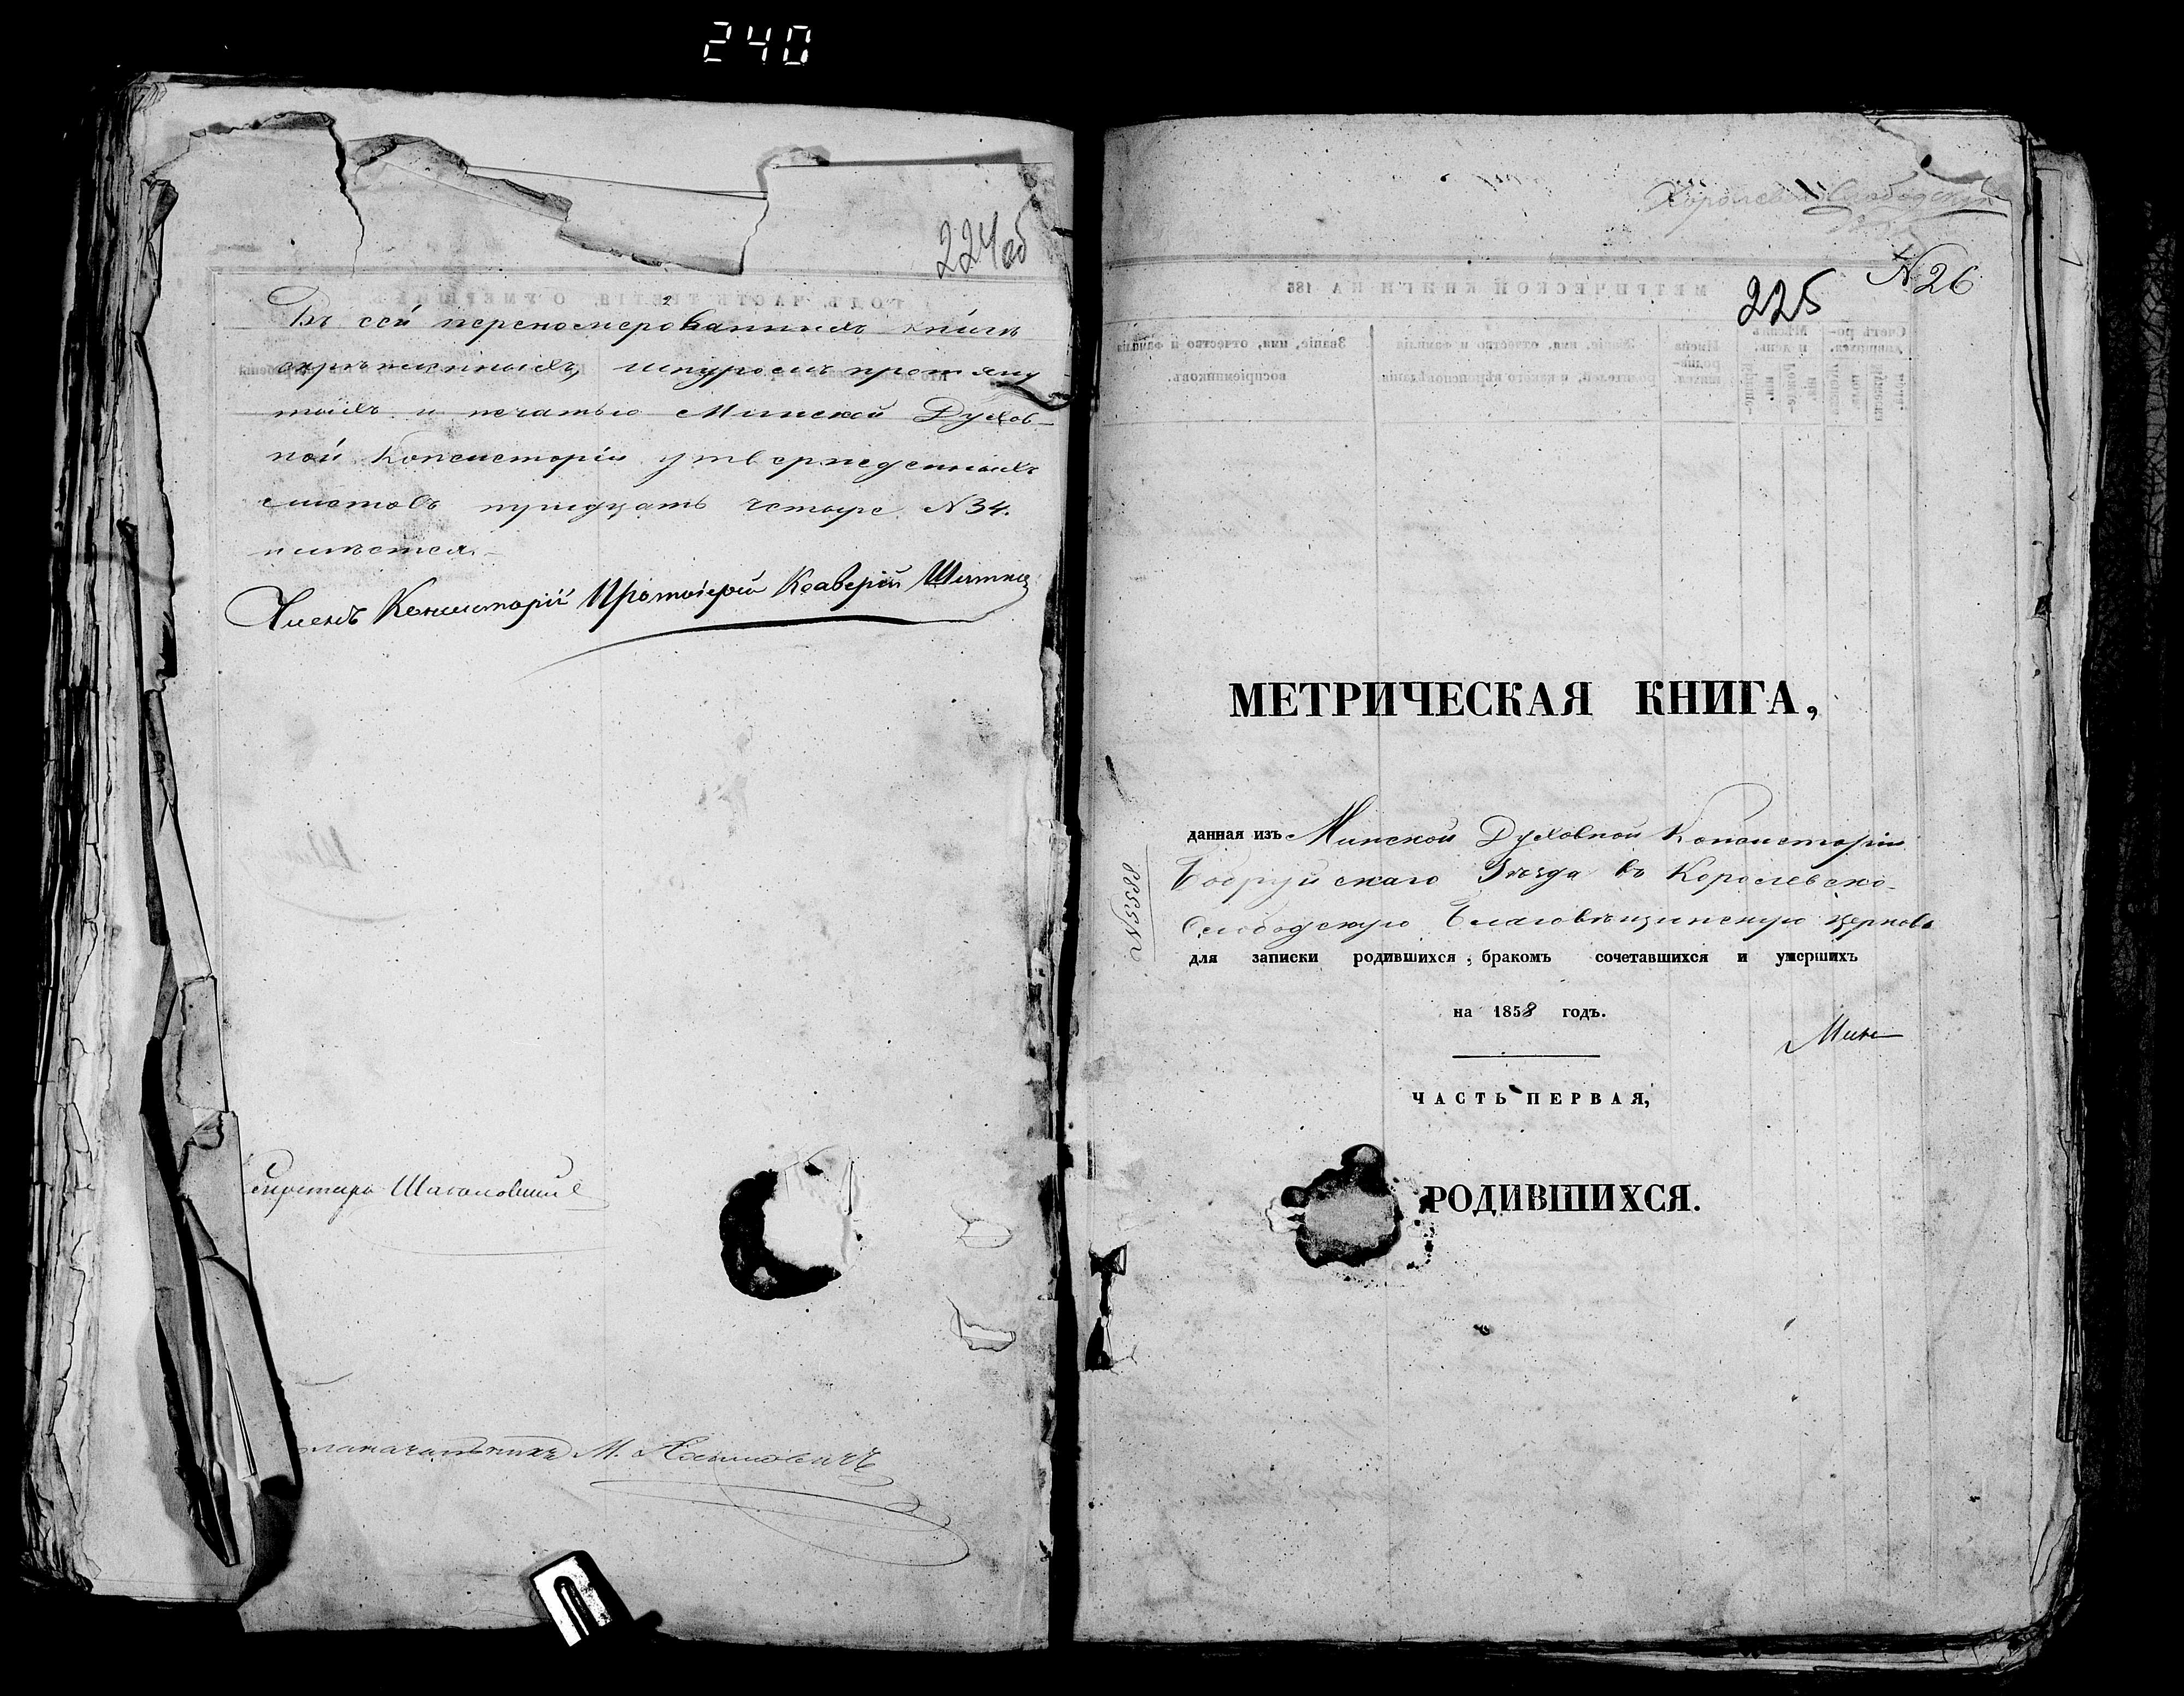 240
224об
Въ сей перенομерованныхъ книгѣ
скрѣпленныхъ, шнуромъ протяну
тыхъ и печатью Минской Духов-
ной Консисторіи утвержденныхъ
листовъ тридцать четыре N 34.
имѣется.
Членъ Консисторіи Протоіерей Ксаверій
Секретарь
М.
Королевослободская
N 26
225
МЕТРИЧЕСКАЯ КНИГА,
данная изъ Минской Духовной Консисторіи
Бобруйскаго Уѣзда въ Королевско-
Слободскую Благовѣщенскую церковь
для записки родившихся, бракомъ сочетавшихся и умершихъ
на 1858 годъ.
ЧАСТЬ ПЕРВАЯ,
РОДИВШИХСЯ.